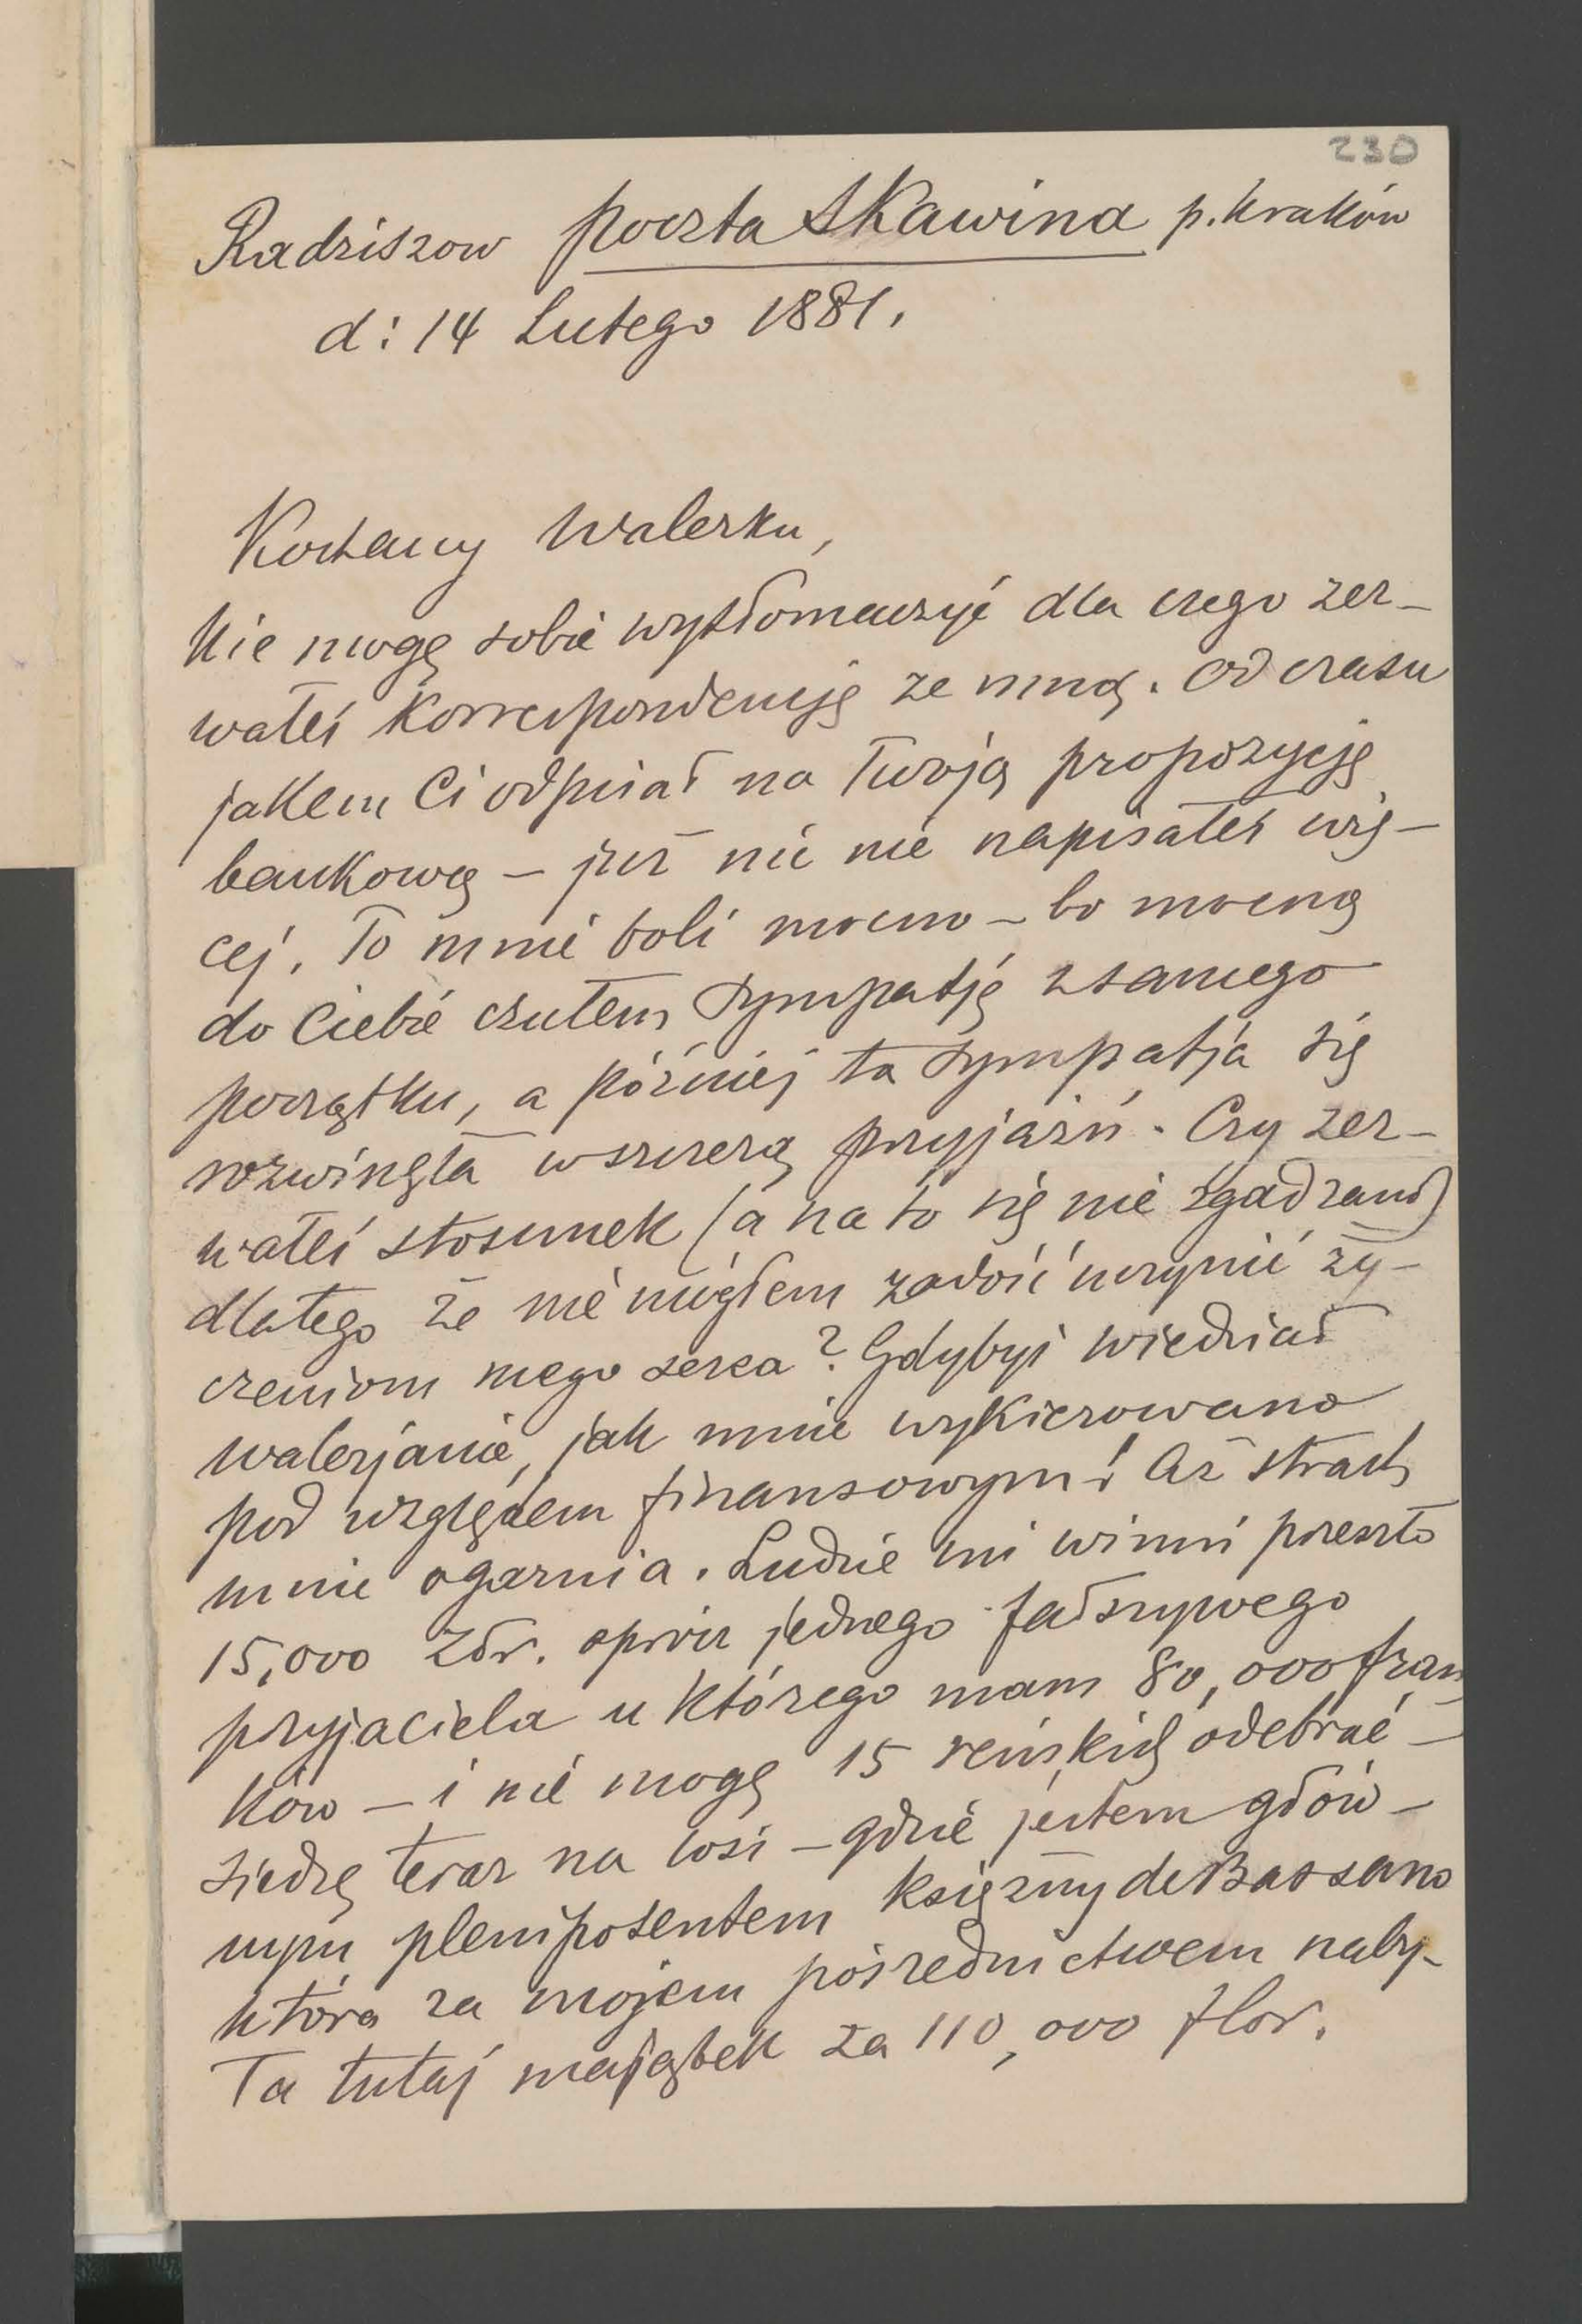 230
Radziszow poczta Skawina p. Kraków
d: 14 Lutego 1881.
Kochany Walerku,
Nie mogę sobie wytłomaczyć dla czego zer-
wałeś korrespondencję ze mną. Od czasu
jakem Ci odpisał na Twoją propozycję
bankową – już nic nie napisałeś wię-
cej. To mnie boli mocno – bo mocną
do Ciebie czułem sympatję z samego
początku, a później ta sympatja się
rozwinęła w szczerą przyjaźń. Czy zer-
wałeś stosunek (a na to się nie zgadzam)
dlatego że nie mógłem zadość uczynić ży-
czeniom mego serca? Gdybyś wiedział
Walerjanie, jak mnie wykierowano
pod względem finansowym! Aż strach
mnie ogarnia. Ludzie mi winni przeszło
15,000 Złr. oprócz jednego fałszywego
przyjaciela u którego mam 80,000 fran
ków – i nie mogę 15 reńskich odebrać –
siedzę teraz na wsi – gdzie jestem głów-
nym plenipotentem księżny de Bassano
która za mojem pośrednictwem naby-
ła tutaj majątek za 110,000 flor.